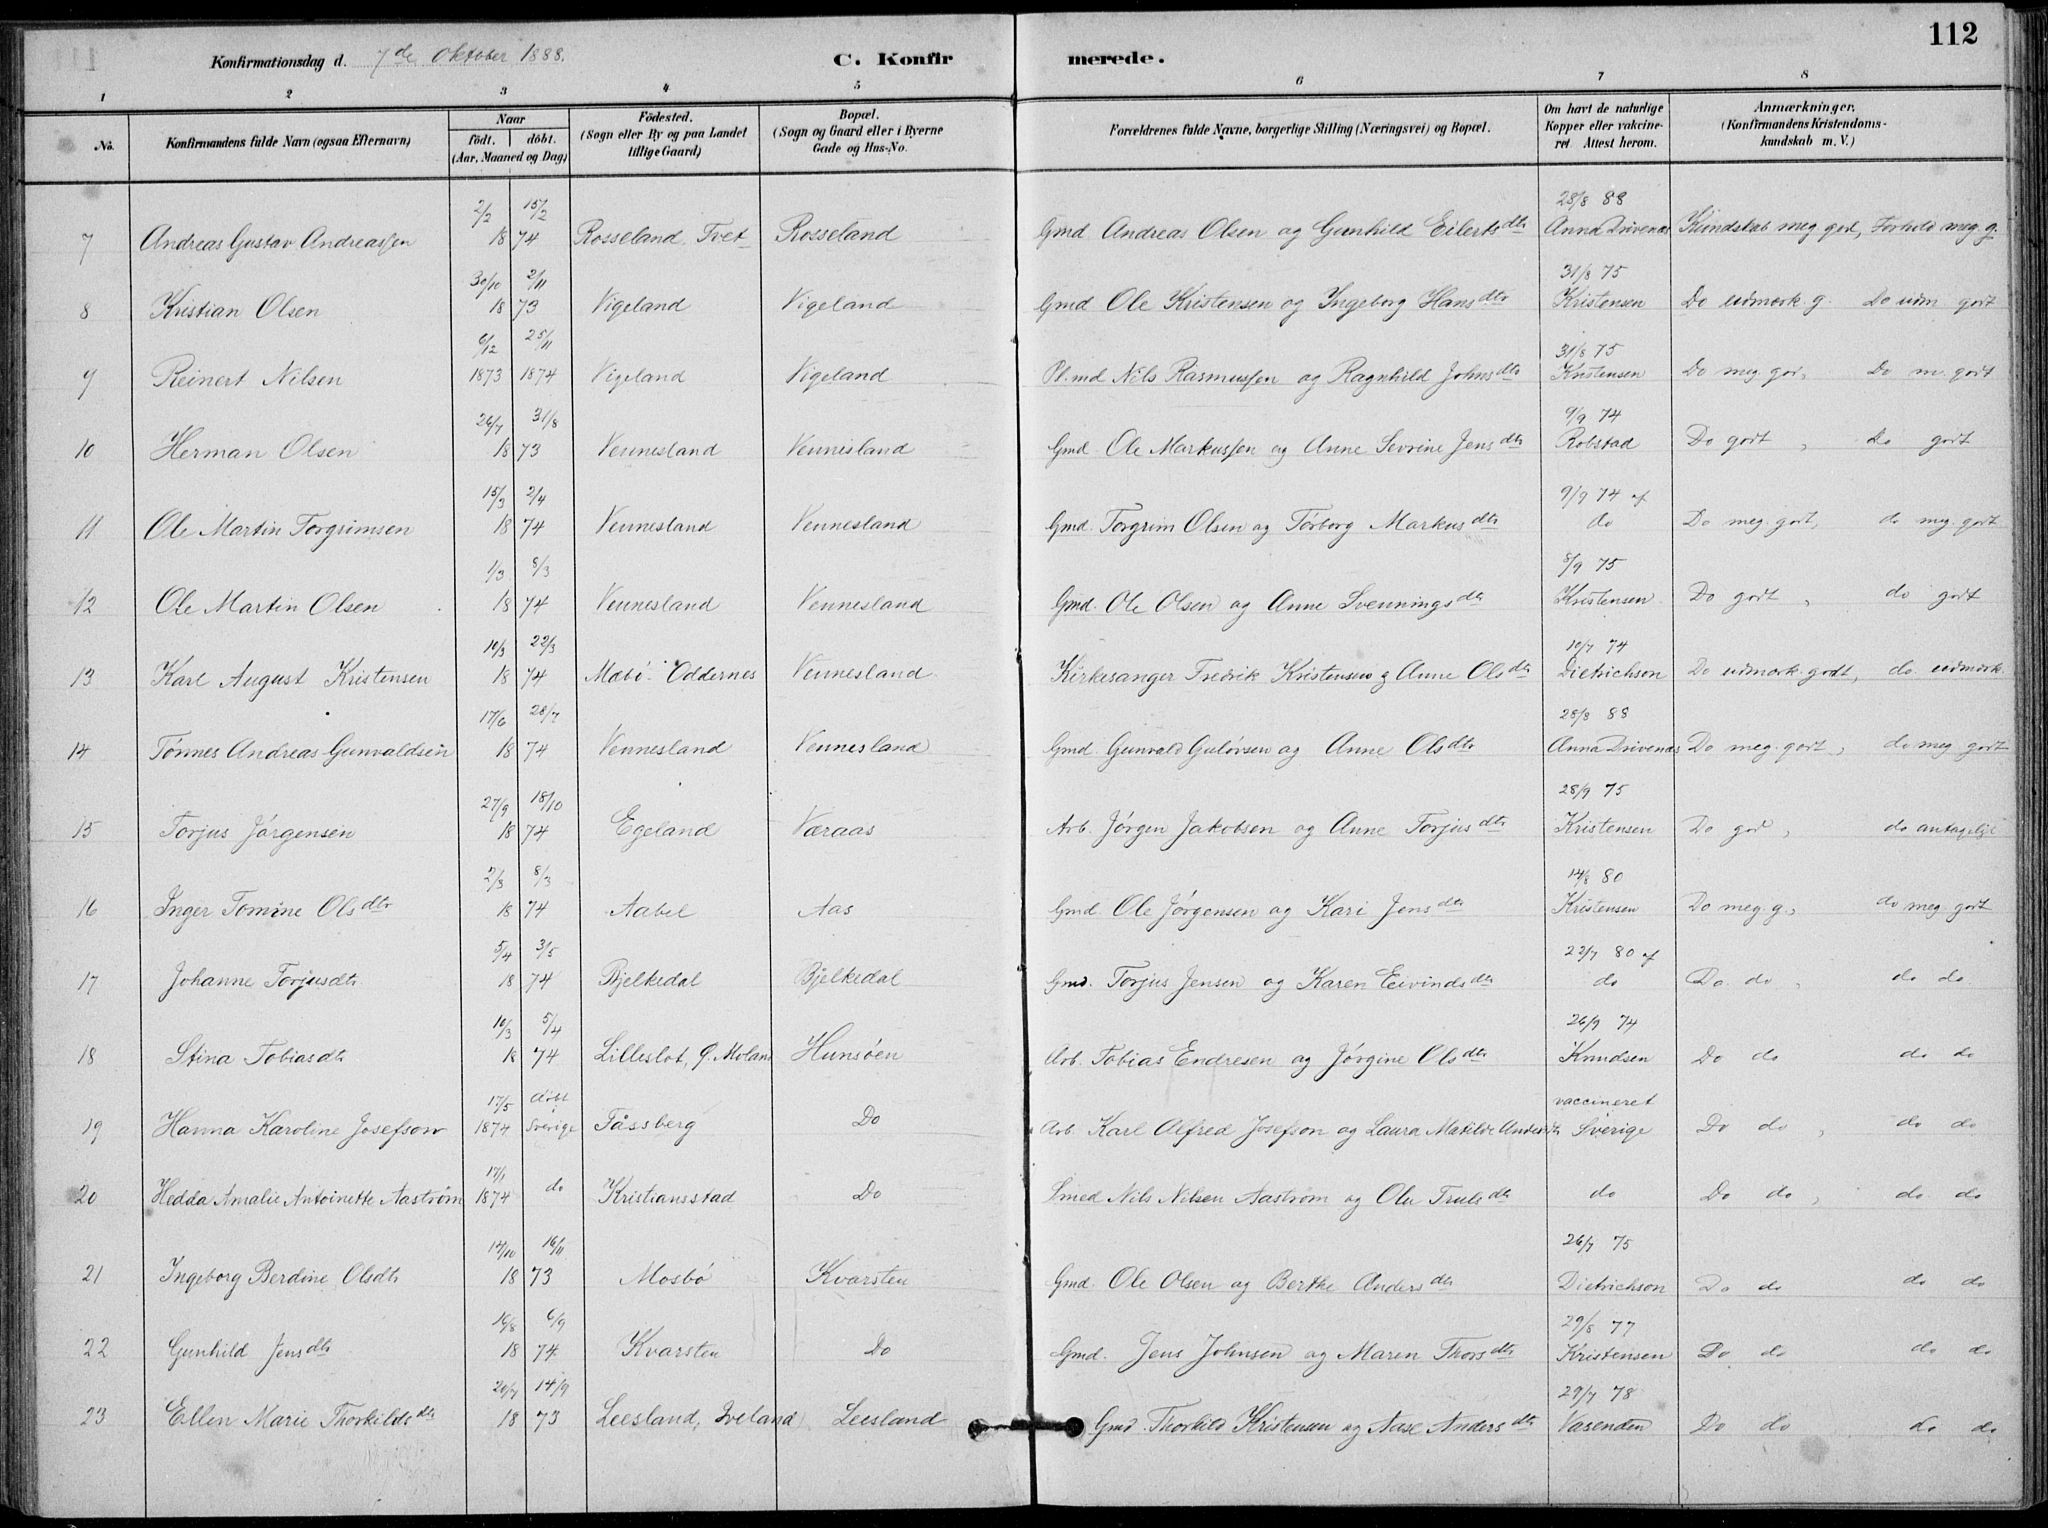 112
Konfirmationsdag d. 7de Oktober 1888.
C. Konfir merede.
1 2 3 4 5 6 7 8
No.
Konfirmandens fulde Navn (ogsaa Efternavn)
Naar
født. døbt.
(Aar, Maaned og Dag)
Fødested.
(Sogn eller By og paa Landet
tillige Gaard)
Bopæl.
(Sogn og Gaard eller i Byerne
Gade og Hus-No.
Forældrenes fulde Navne, borgerlige Stilling (Næringsvei) og Bopæl.
Om havt de naturlige
Kopper eller vakcine-
ret Attest herom.
Anmærkninger.
(Konfirmandens Kristendoms-
kundskab m. V.)
2/2 15/2 28/8 88
7 Andreas Gustav Andreassen 18 74 Rosseland, Tvet Rosseland Gmd Andreas Olsen og Gunhild Eilertsdtr Anna Drivenæs Kundskab meg god, Forhold meg g.
30/10 2/11 31/8 75
8 Kristian Olsen 18 73 Vigeland Vigeland Gmd Ole Kristensen og Ingeborg Hansdtr Kristensen Do udmærk. g. Do udm godt
6/12 25/11 31/8 75
9 Reinert Nilsen 1873 1874 Vigeland Vigeland Pl.md Nils Rasmussen og Ragnhild Johnsdtr Kristensen Do meg. god, Do m. godt
26/7 31/8 9/9 74
10 Herman Olsen 18 73 Vennesland Vennesland Gmd. Ole Markussen og Anne Sevrine Jensdtr Robstad Do godt, do godt
15/3 2/4 9/9 74 af
11 Ole Martin Torgrimsen 18 74 Vennesland Vennesland Gmd. Torgrim Olsen og Torborg Markusdtr do Do meg. godt, do meg. godt
1/3 8/3 8/9 75
12 Ole Martin Olsen 18 74 Vennesland Vennesland Gmd. Ole Olsen og Anne Svenningsdtr Kristensen Do godt, do godt
10/3 22/3 10/7 74
13 Karl August Kristensen 18 74 Mæbø Oddernes Vennesland Kirkesanger Fredrik Kristensen g Anne Olsdtr Dietrichson Do udmærk. godt, do. udmærk.
17/6 28/7 28/8 88
14 Tønnes Andreas Gunvaldsen 18 74 Vennesland Vennesland Gmd. Gunvald Guløvsen og Anne Olsdtr Anna Drivenæs Do meg. godt, do meg godt
27/9 18/10 28/9 75
15 Torjus Jørgensen 18 74 Egeland Væraas Arb. Jørgen Jakobsen og Anne Torjusdtr Kristensen Do god, do antagelig
2/3 8/3 14/8 80
16 Inger Tomine Olsdtr 18 74 Aabel Aas Gmd Ole Jørgensen og Kari Jensdtr Kristensen Do meg. g., do meg godt
5/4 3/5 22/7 80 af
17 Johanne Torjusdtr 18 74 Bjelkedal Bjelkedal Gmd. Torjus Jensen og Karen Eivindsdtr do Do. do, do do.
10/3 5/4 26/9 74
18 Stina Tobiasdtr 18 74 Lilleslot, Ø. Moland Hunsøen Arb. Tobias Endresen og Jørgine Olsdtr Knudsen Do do do do
17/5 døbt i vaccineret
19 Hanna Karoline Josefson 1874 Sverige Tåssberg Do Arb. Karl Alfred Josefson og Laura Matilde Andersdtr i Sverige Do do, do do
17/1
20 Hedda Amalie Antoinette Aastrøm 1874 do Kristiansstad Do Smed Nils Nilsen Aastrøm og Olu Trulsdtr do Do do, do do
14/10 16/11 26/7 75
21 Ingeborg Berdine Olsdtr 18 73 Mosbø Kvarsten Gmd. Ole Olsen og Berthe Andersdtr Dietrichson Do do do do
16/8 6/9 29/8 77
22 Gunhild Jensdtr 18 74 Kvarsten Do Gmd. Jens Johnsen og Maren Thorsdtr Kristensen Do do do do
20/7 14/9 29/7 78
23 Ellen Marie Thorkildsdtr 18 73 Leesland, Iveland Leesland Gmd. Thorkild Kristensen og Aase Andersdtr Vasenden Do do do do